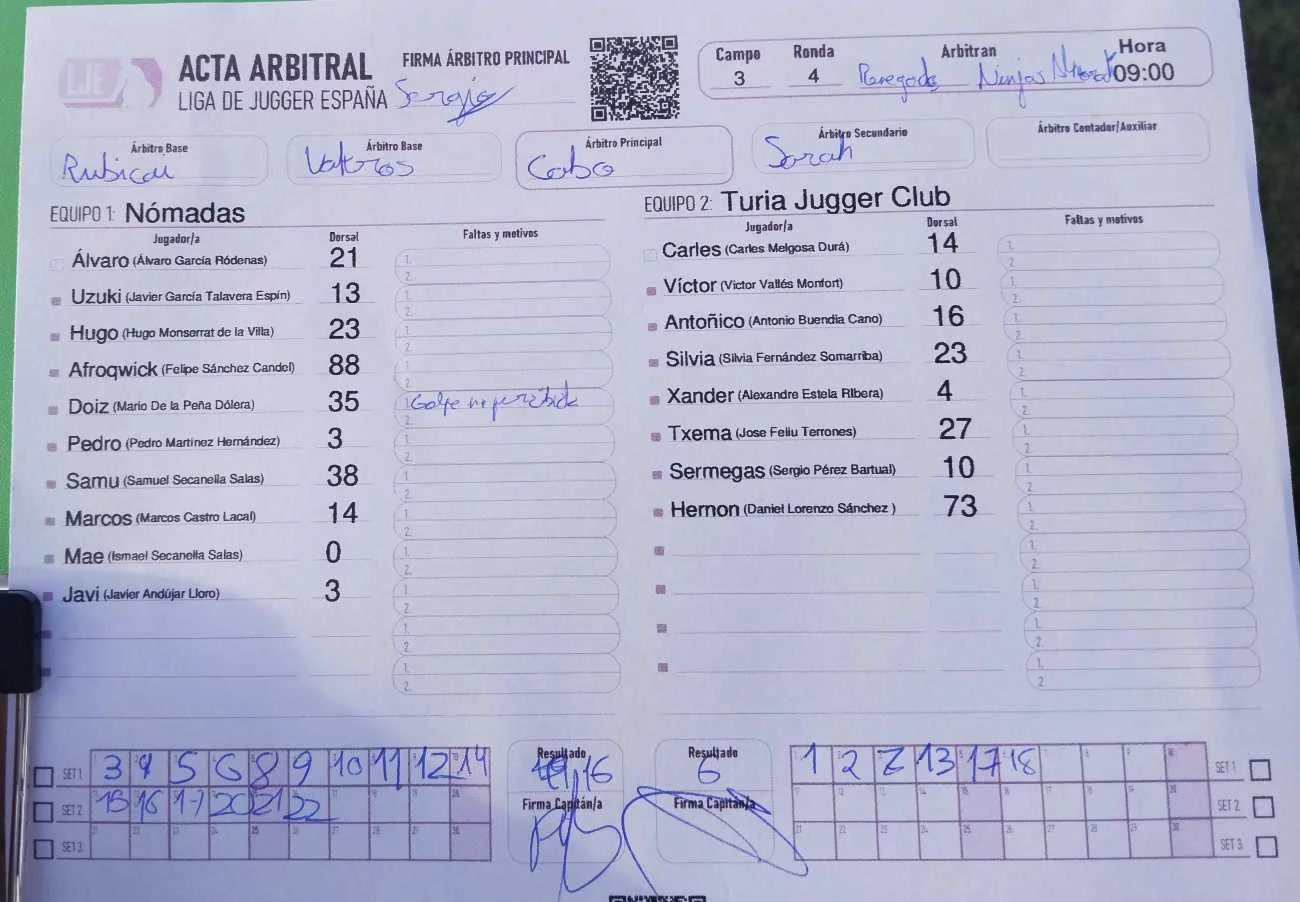 LJE
ACTA ARBITRAL
LIGA DE JUGGER ESPAÑA
FIRMA ÁRBITRO PRINCIPAL
Sergio
Campo Ronda Arbitran Hora
3 4 Renegados Ninjas 09:00
Árbitro Base Árbitro Base Árbitro Principal Árbitro Secundario Árbitro Contador/Auxiliar
Cabo Sarah
EQUIPO 1: Nómadas
Jugador/a Dorsal Faltas y motivos
Álvaro (Álvaro García Ródenas) 21 1. 2.
Uzuki (Javier García Talavera Espín) 13 1. 2.
Hugo (Hugo Monserrat de la Villa) 23 1. 2.
Afroqwick (Felipe Sánchez Candel) 88 1. 2.
Doiz (Mario De la Peña Dólera) 35 1. Golpe no percibido 2.
Pedro (Pedro Martínez Hernández) 3 1. 2.
Samu (Samuel Secanella Salas) 38 1. 2.
Marcos (Marcos Castro Lacal) 14 1. 2.
Mae (Ismael Secanella Salas) 0 1. 2.
Javi (Javier Andújar Lloro) 3 1. 2.
1. 2.
1. 2.
EQUIPO 2: Turia Jugger Club
Jugador/a Dorsal Faltas y motivos
Carles (Carles Melgosa Durá) 14 1. 2.
Víctor (Victor Vallés Monfort) 10 1. 2.
Antoñico (Antonio Buendia Cano) 16 1. 2.
Silvia (Silvia Fernández Somarriba) 23 1. 2.
Xander (Alexandre Estela Ribera) 4 1. 2.
Txema (Jose Feliu Terrones) 27 1. 2.
Sermegas (Sergio Pérez Bartual) 10 1. 2.
Hernon (Daniel Lorenzo Sánchez ) 73 1. 2.
1. 2.
1. 2.
1. 2.
1. 2.
SET 1 3 4 5 6 8 9 10 11 12 14
SET 2 15 16 17 20 21 22
SET 3
Resultado
16
Firma Capitán/a
Resultado
6
Firma Capitán/a
1 2 7 13 17 18 SET 1
SET 2
SET 3